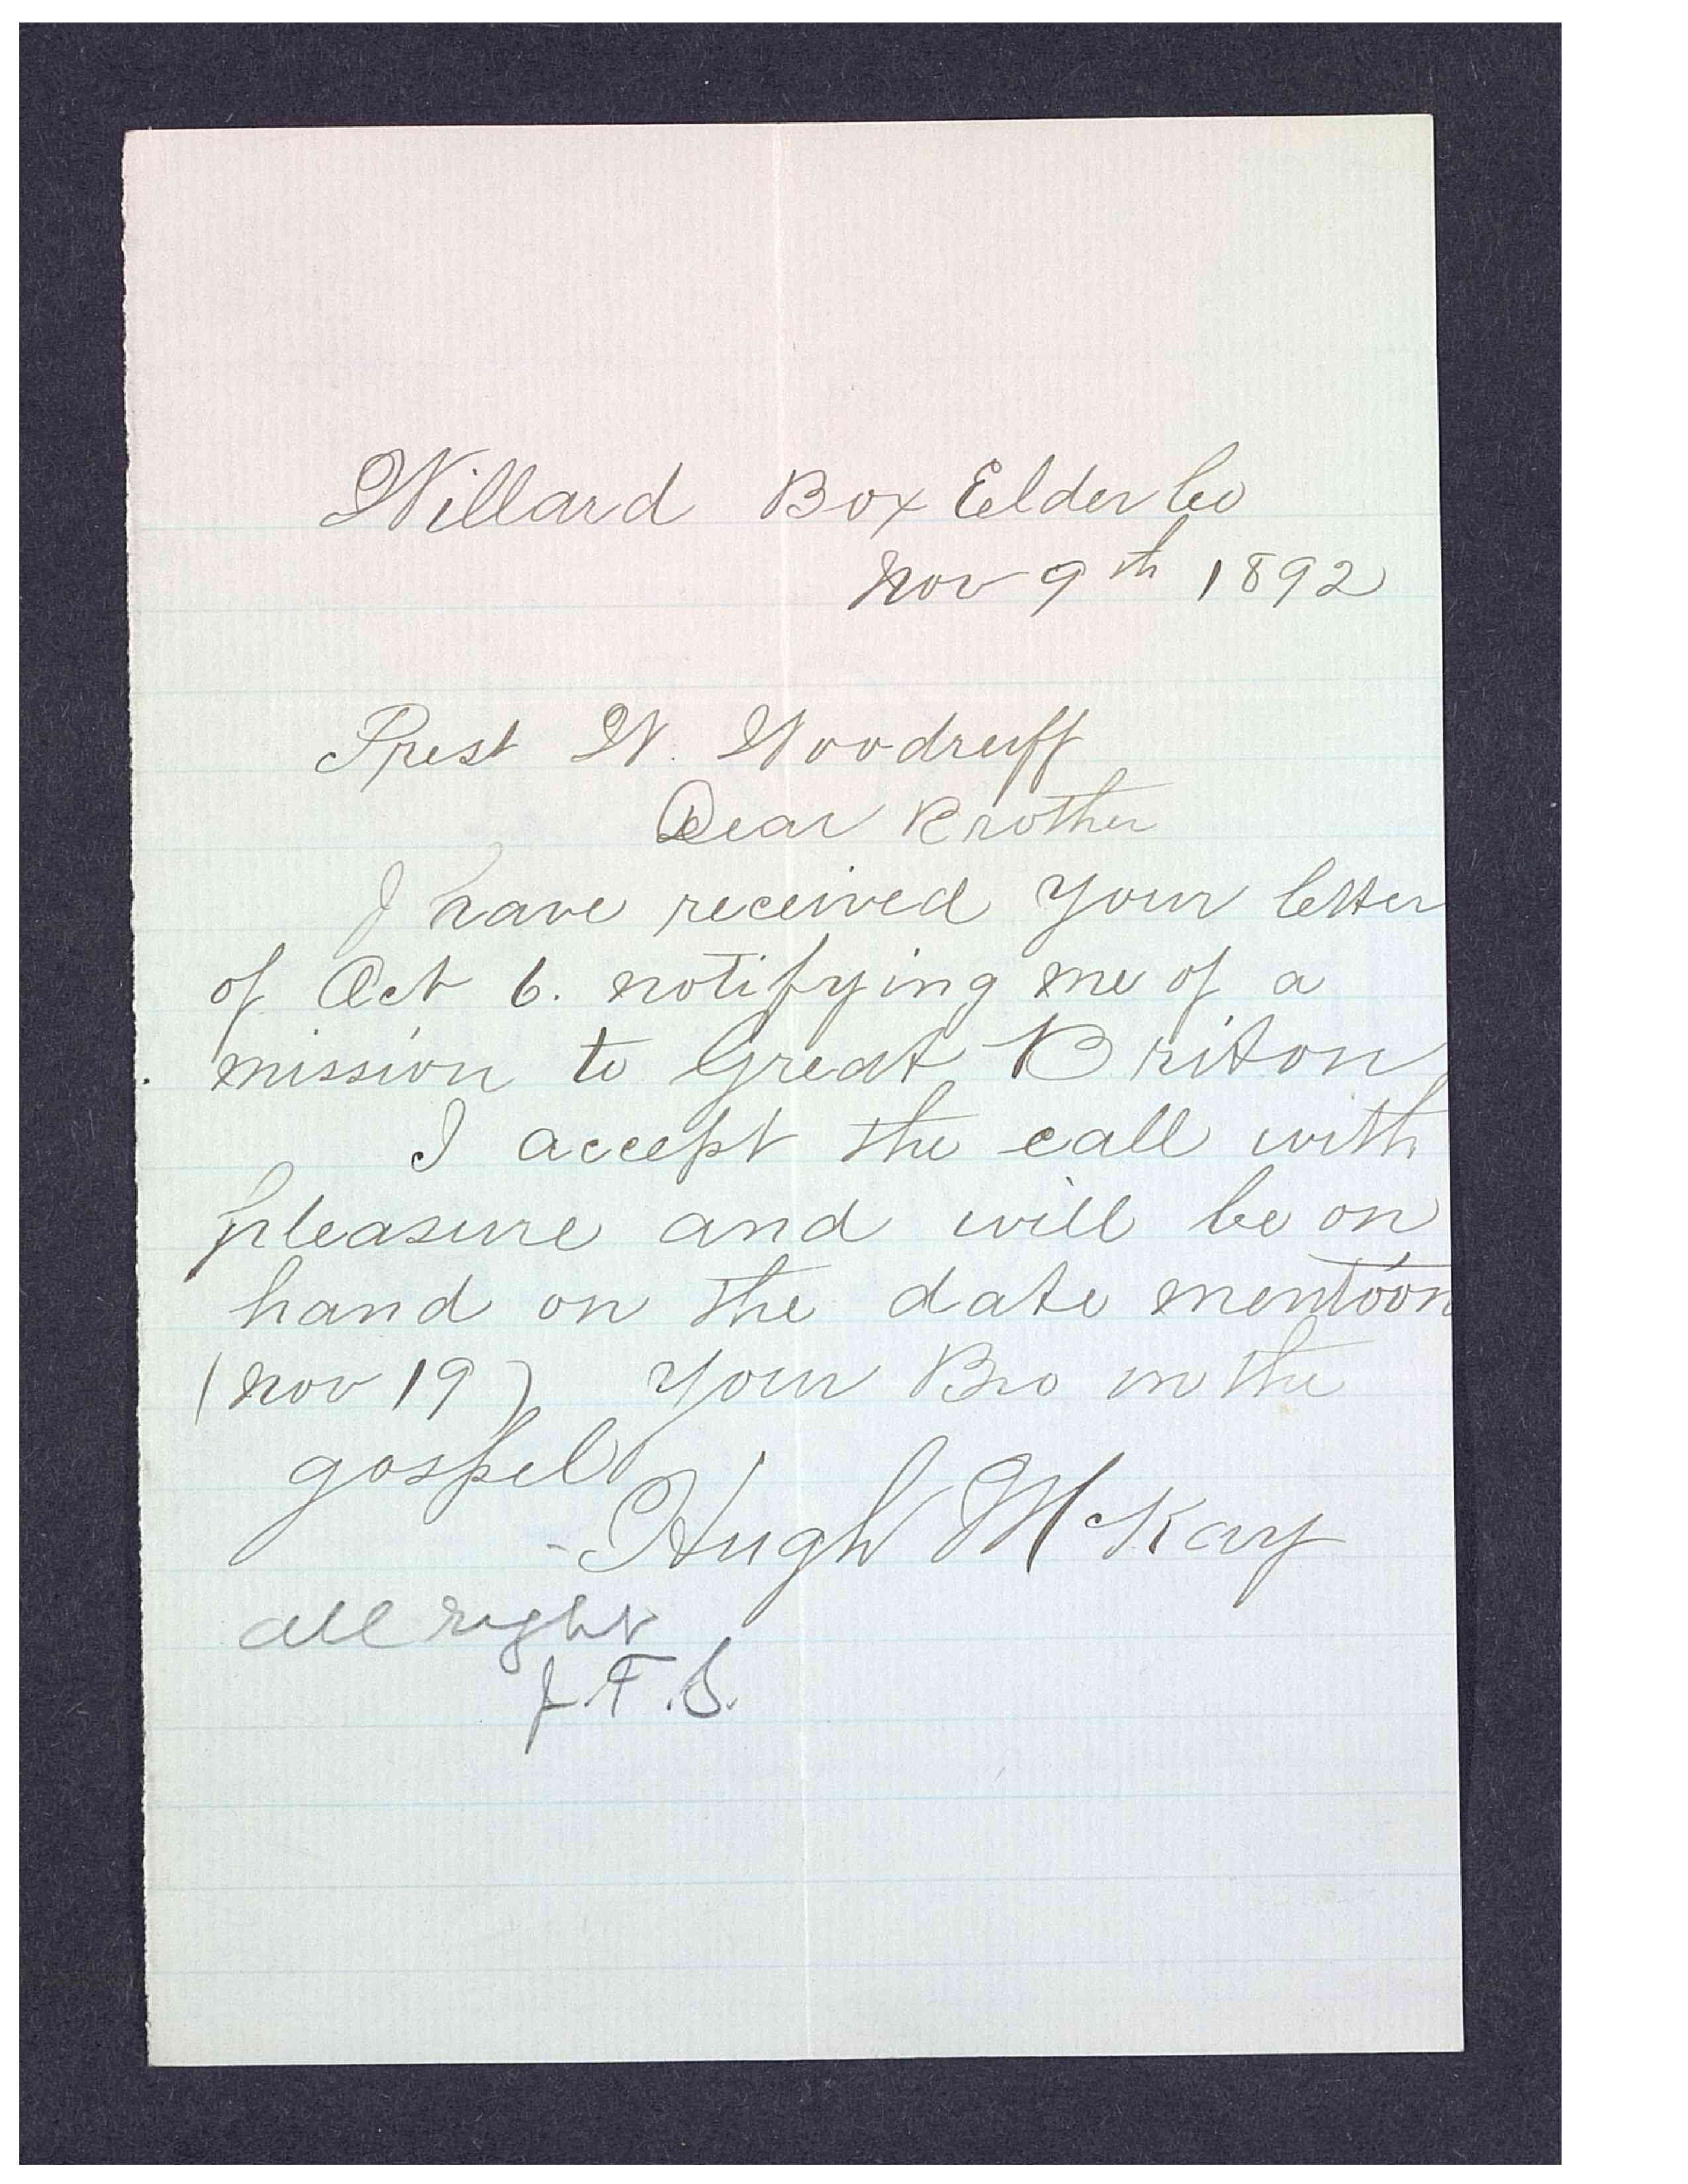 Willard Box Elder Co
Nov 9th 1892
Prest W. Woodruff
Dear Brother
I have received your letter
of Oct 6. notifying me of a
mission to Great Briton
I accept the call with
pleasure and will be on
hand on the date mention
(Nov 19) your Bro in the
gospel
Hugh McKay
all right
J.F.S.